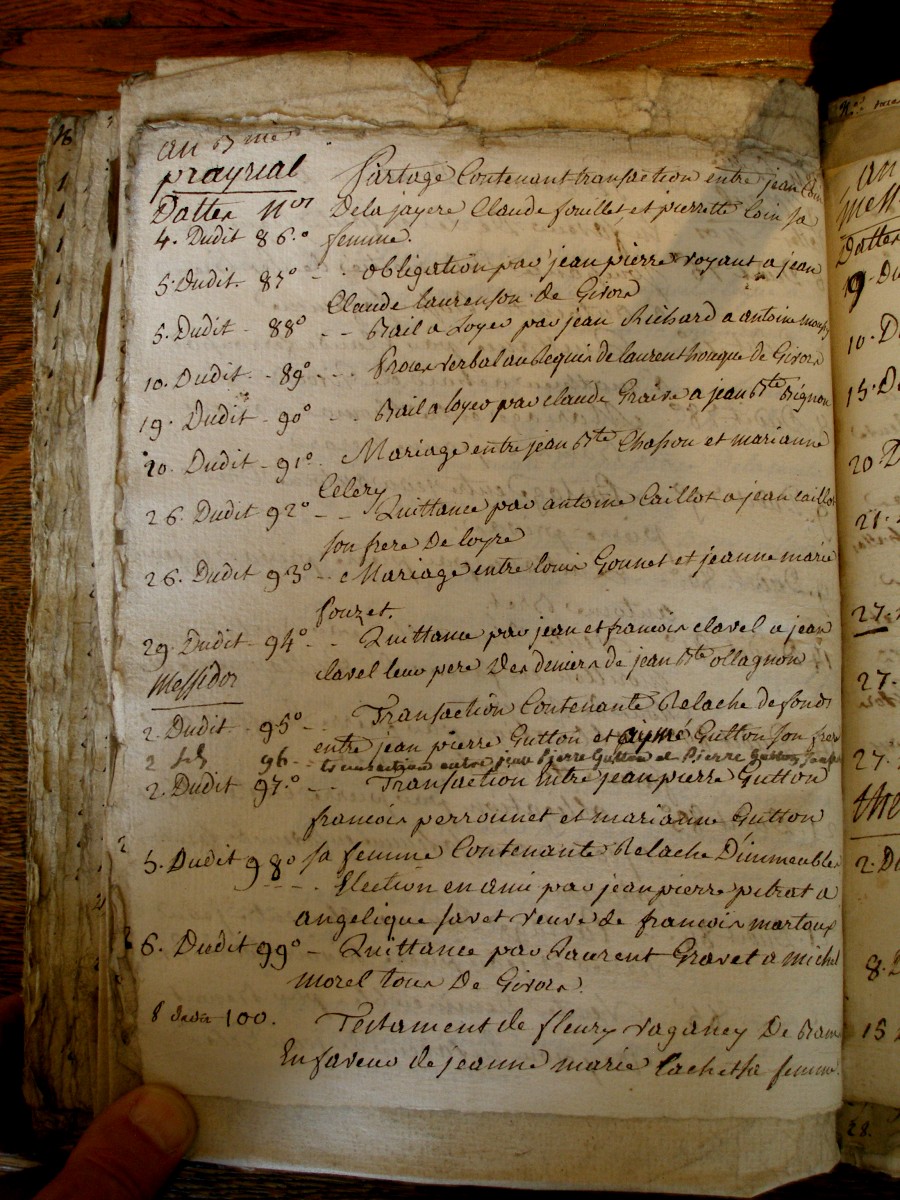 an 13 me
prayrial
Dattes nos
Partage Contenant transaction entre jean Loin
Delajayere Claude fouillet et pierrette loin sa
4. Dudit 86.o femme.
5. Dudit - 87o - - obligation par jean pierre voyant a jean
Claude laurenson de Givors
5. Dudit - 88o - - Bail a Loyer par jean Richard a antoine
10. Dudit - 89o - - - Proces verbal au Requis de laurent houque de Givors
19. Dudit - 90o - - Bail a loyer par claude Graise a jean Bte Brignon
20. Dudit - 91o. Mariage entre jean Bte Chasson et marianne
Celery
26. Dudit 92o - - Quittance par antoine Caillot a jean caillot
son frere De loyre
26. Dudit 93o - - Mariage entre louis Gounet et jeanne marie
fouzet.
29. Dudit - 94o - - Quittance par jean et francois clavel a jean
clavel leur pere Des deniers de jean Bte ollagnon
Messidor
2. Dudit - 95o - - Transaction Contenante Relache de fonds
entre jean pierre Gutton et aymé Gutton son frere
2 96 - - transaction entre jean Pierre Gutton et Pierre Gutton
2. Dudit 97.o - - Transaction Entre jean pierre Gutton
francois perronnet et marianne Gutton
5. Dudit 98o sa femme Contenante Relache D'immeubles
- - - . Election en ami par jean pierre pitrat a
angelique favet veuve de francois martoux
6. Dudit 99o - Quittance par Laurent Gravet a michel
morel tous De Givors.
8 100. Testament de fleury vaganey De
En faveur de jeanne marie lachet sa femme.